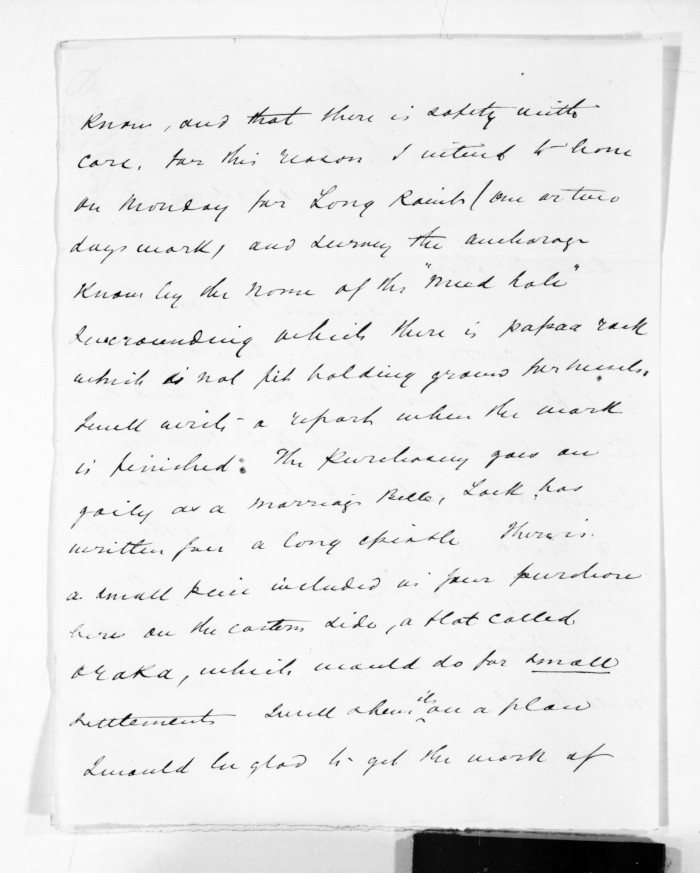 know, and that there is safety with
care, for this reason I intend to leave
on Monday for Long Point (one or two
days work, and survey the anchorage
known by the name of the "Mud hole"
Surrounding which there is papaa rock
which is not fit holding ground for vessels.
I will write a report when the work
is finished. The Purchasing goes on
gaily as a marriage Bell, Lock has
written for a long epistle There is
a small piece included in your purchase
here on the eastern side, a flat called
oraka, which would do for small
settlements I will shew it on a plan
I would be glad to get the work of